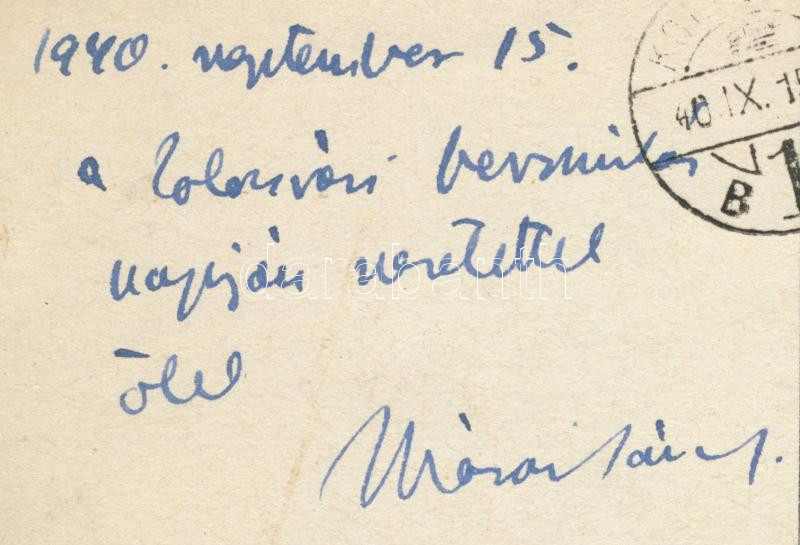 1940. szeptember 15.
a kolozsvári bevonulás
napján szeretettel
ölel
Márai Sándor.
40. IX. 15
B
1
darabanth